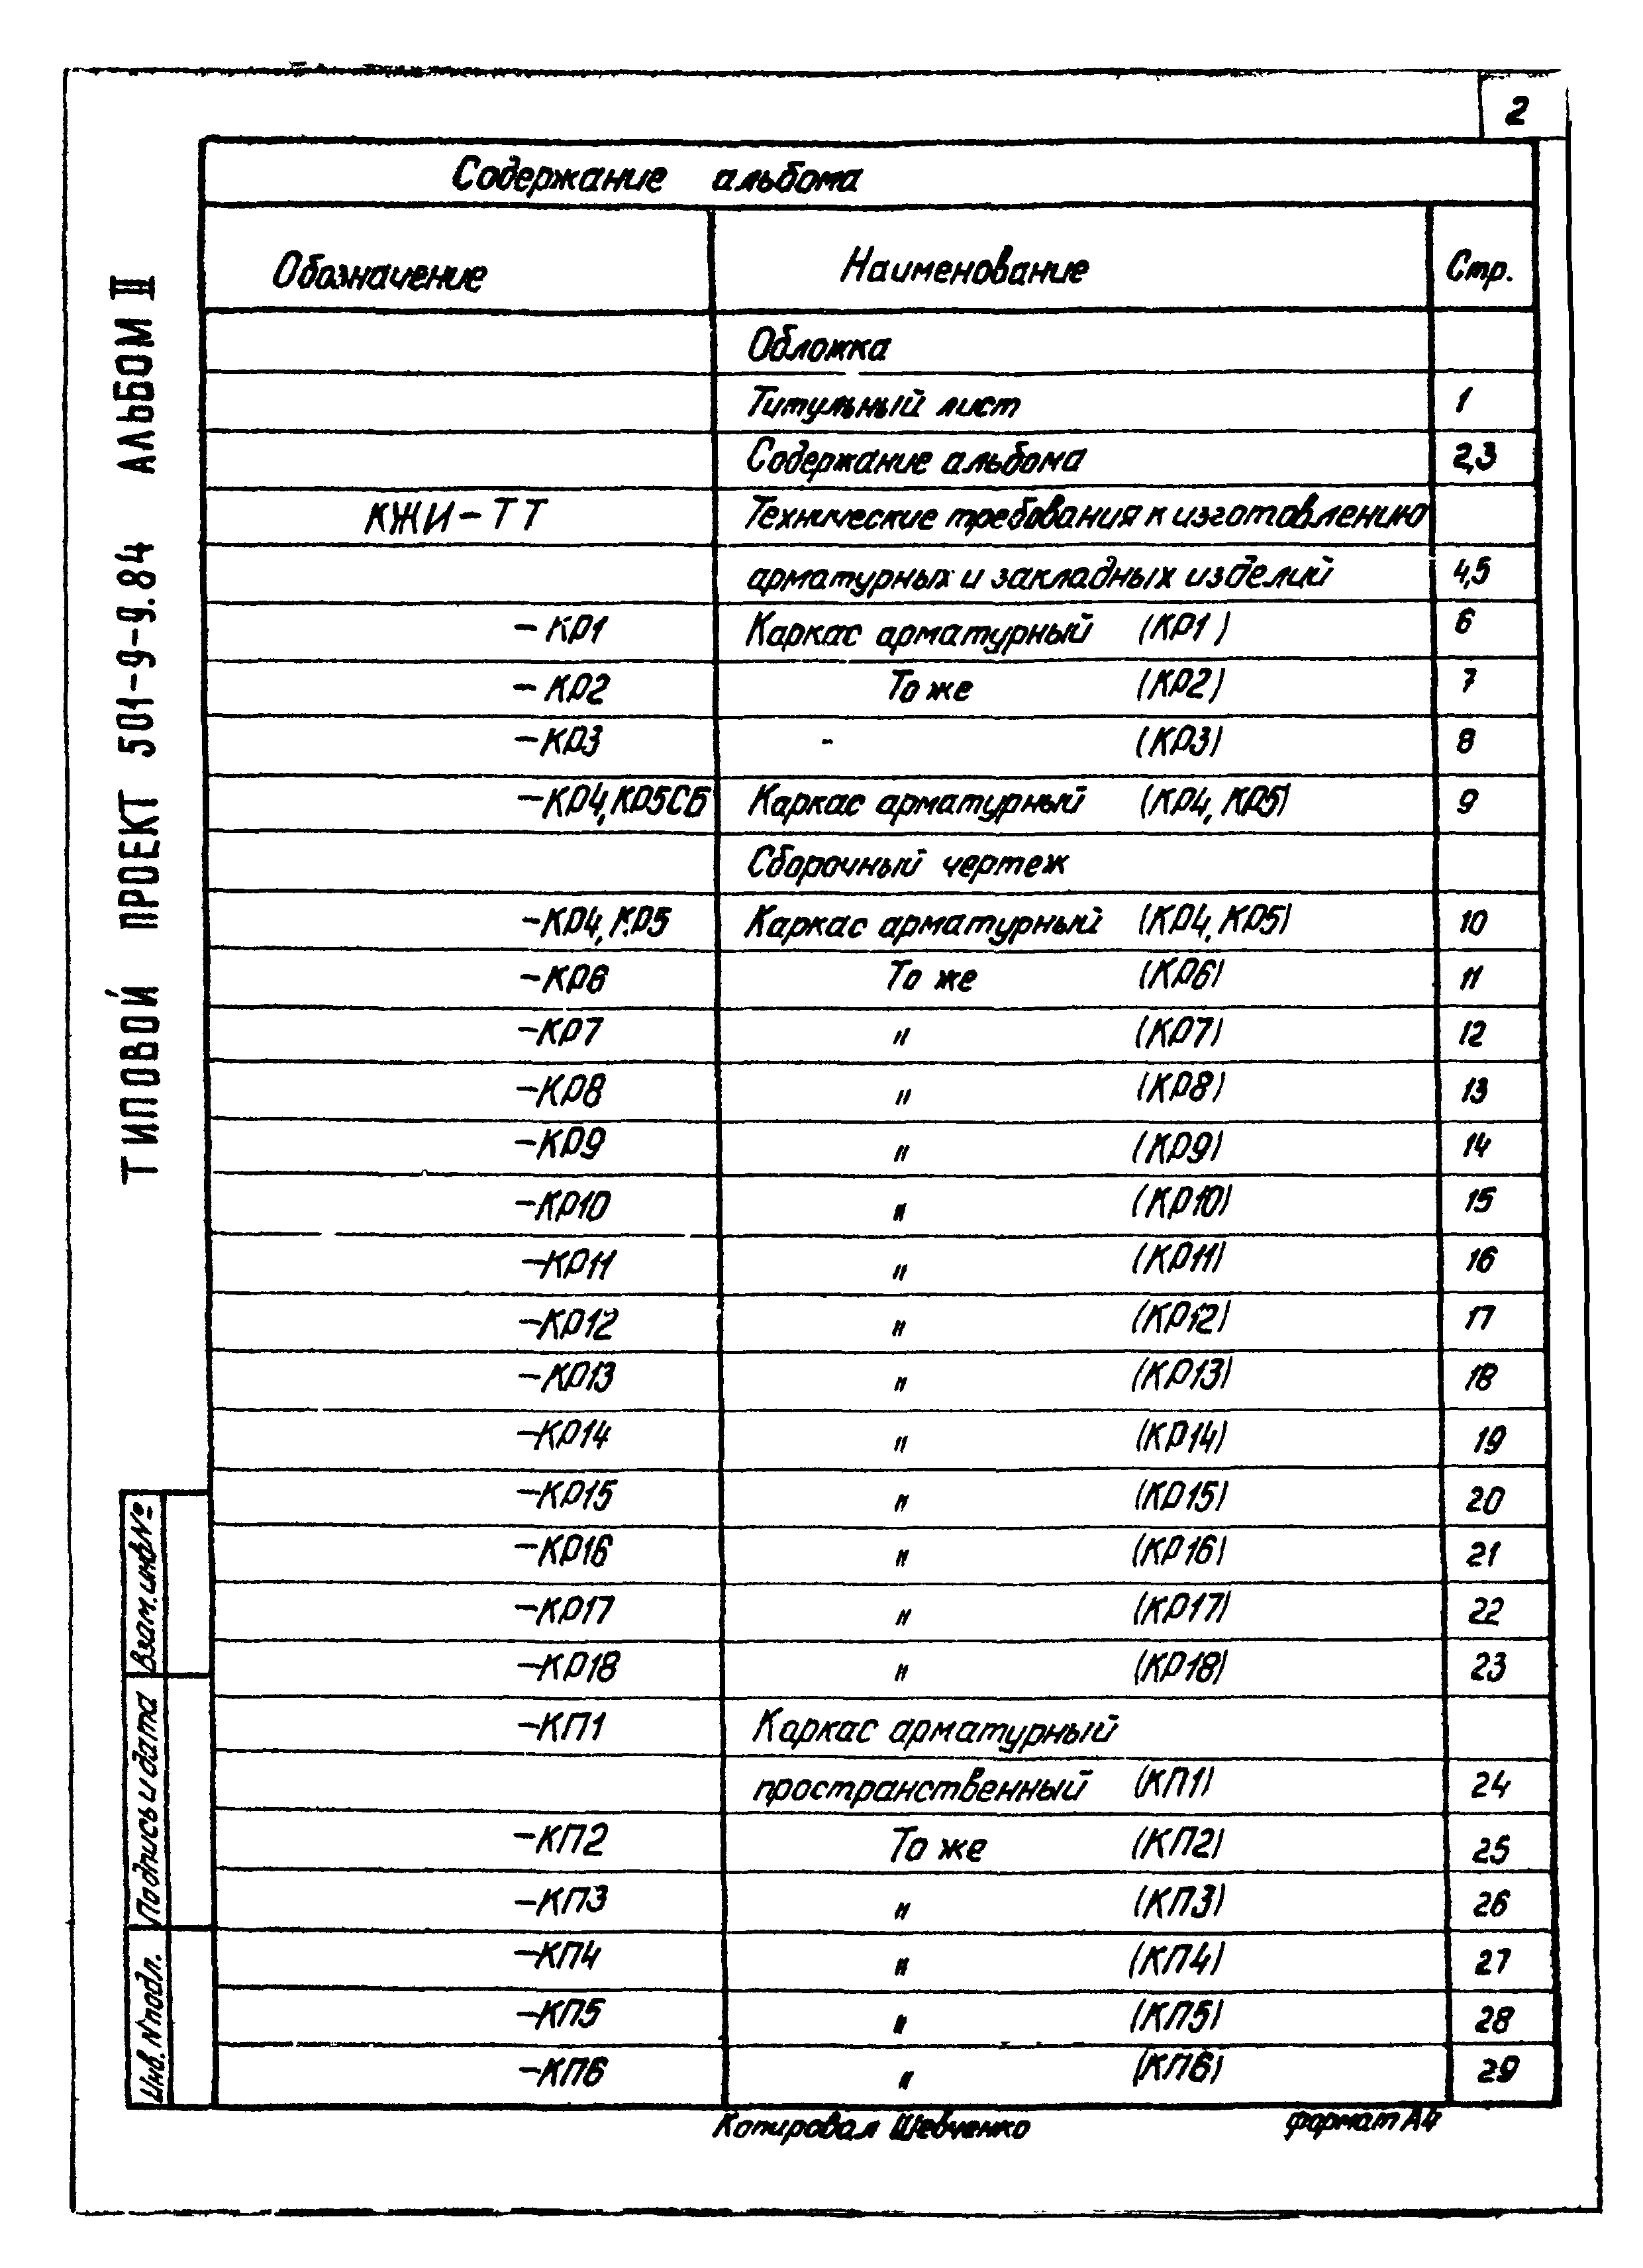 2
Содержание альбома
Обозначение Наименование Стр.
Обложка
Титульный лист 1
Содержание альбома 2,3
КЖИ-ТТ Технические требования к изготовлению
арматурных и закладных изделий 4,5
-КР1 Каркас арматурный (КР1) 6
-КР2 То же (КР2) 7
-КР3 - (КР3) 8
-КР4, КР5СБ Каркас арматурный (КР4, КР5) 9
Сборочный чертеж
-КР4, КР5 Каркас арматурный (КР4, КР5) 10
-КР6 То же (КР6) 11
-КР7 " (КР7) 12
-КР8 " (КР8) 13
-КР9 " (КР9) 14
-КР10 " (КР10) 15
-КР11 " (КР11) 16
-КР12 " (КР12) 17
-КР13 " (КР13) 18
-КР14 " (КР14) 19
-КР15 " (КР15) 20
-КР16 " (КР16) 21
-КР17 " (КР17) 22
-КР18 " (КР18) 23
-КП1 Каркас арматурный
пространственный (КП1) 24
-КП2 То же (КП2) 25
-КП3 " (КП3) 26
-КП4 " (КП4) 27
-КП5 " (КП5) 28
-КП6 " (КП6) 29
Копировал Шевченко формат А4
ТИПОВОЙ ПРОЕКТ 501-9-9.84 АЛЬБОМ II
Взам. инв№
Подпись и дата
Инв. N подл.